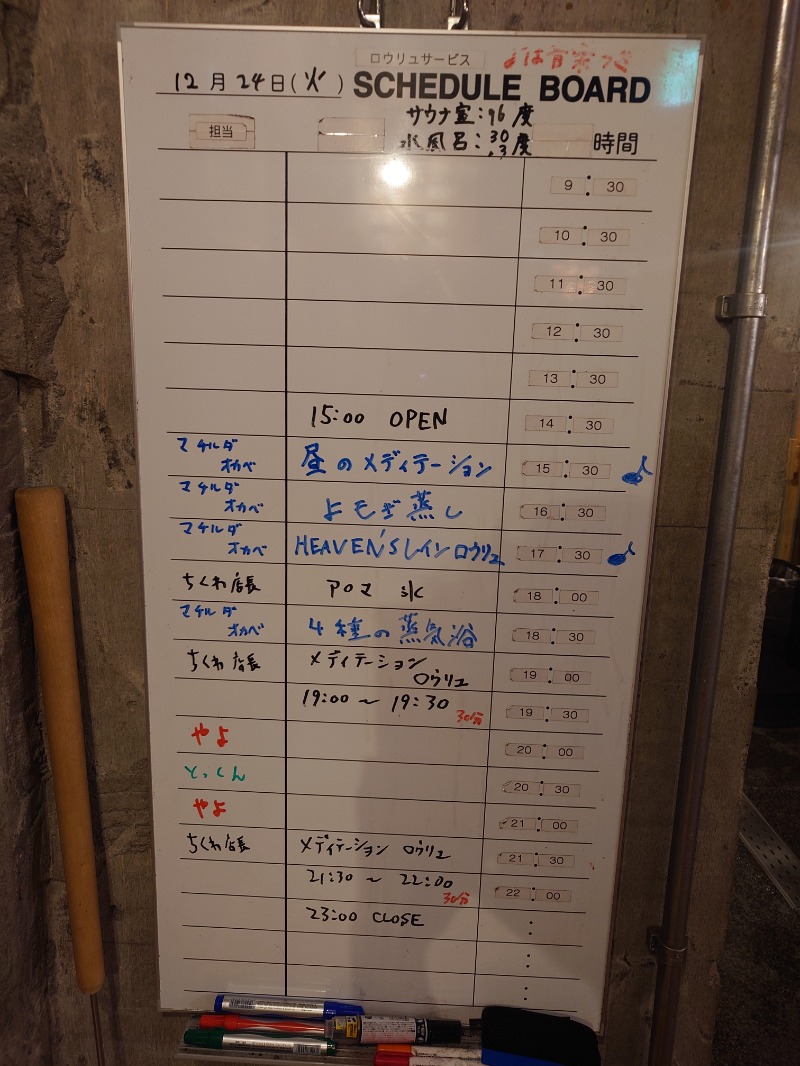 ロウリュサービス
は音楽つき
12月24日(火)
SCHEDULE BOARD
サウナ室:96度
担当
水風呂:30
13度
時間
9:30
10:30
11:30
12:30
13:30
15:00 OPEN 14:30
マチルダ オカベ 昼のメディテーション 15:30
マチルダ オカベ よもぎ蒸し 16:30
マチルダ オカベ HEAVEN'Sレインロウリュ 17:30
ちくわ店長 アロマ氷 18:00
マチルダ オカベ 4種の蒸気浴 18:30
ちくわ店長 メディテーション ロウリュ 19:00
19:00～19:30 30分 19:30
やよ 20:00
とっくん 20:30
やよ 21:00
ちくわ店長 メディテーション ロウリュ 21:30
21:30～22:00 30分 22:00
23:00 CLOSE :
:
: